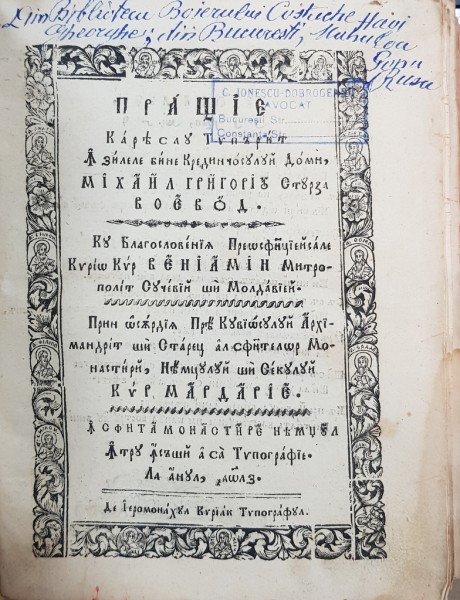 Din Biblioteca Boierului Costache Haivi
Gheorghe, din Bucuresti,
Popa
Rusu
C. IONESCU-DOBROGEANU
AVOCAT
Bucureşti Str.
Constanţa Str.
ПРАЩІЕ
Кареслу Тѵпърит
Ꙟ зилеле бине крединчосулуй Домн,
МІХАИЛ ГРИГОРІУ Стурза
ВОЕВОД.
Ку Благословенія Преѡсфинцієйсале
Кѵріѡ Кѵр ВЕНІАМІН Митро-
політ Сучевій ши Молдавіей.
Прин ѡсърдія Пре Кувіѡсулуй Архі-
мандріт ши Старец ал сфинтелѡр Мо-
настири, Нѣмцулуй ши Секулуй
КѴР МАРДАРІЕ.
Ꙟ сфита монастире Нѣмцул
Ꙟтру ꙟсъши аса Тѵпографіе.
Ла анул, ҂аѡлз.
Де Іеромонахул Кѵріак Тѵпографул.